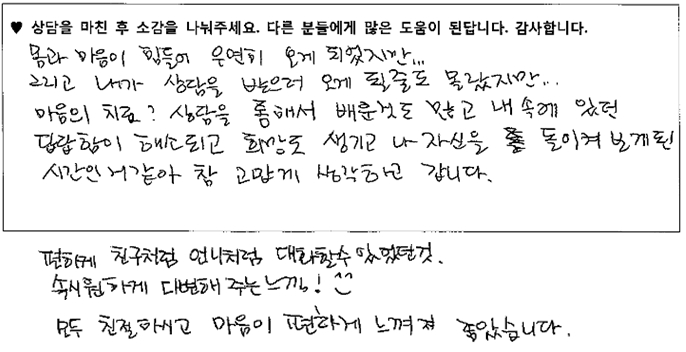 ♥ 상담을 마친 후 소감을 나눠주세요. 다른 분들에게 많은 도움이 된답니다. 감사합니다.
몸과 마음이 힘들어 우연히 오게 되었지만...
그리고 나가 상담을 받으러 오게 될줄도 몰랐지만...
마음의 치료? 상담을 통해서 배운것도 많고 내 속에 있던
답답함이 해소되고 희망도 생기고 나 자신을 돌이켜 보게된
시간인거같아 참 고맙게 생각하고 갑니다.
편하게 친구처럼 언니처럼 대화할수 있었던것.
속시원하게 대변해 주는느낌!
모두 친절하시고 마음이 편하게 느껴져 좋았습니다.